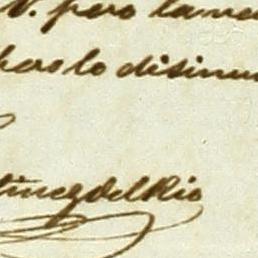 V. pero la ve
pero lo disimu
tinez del Rio